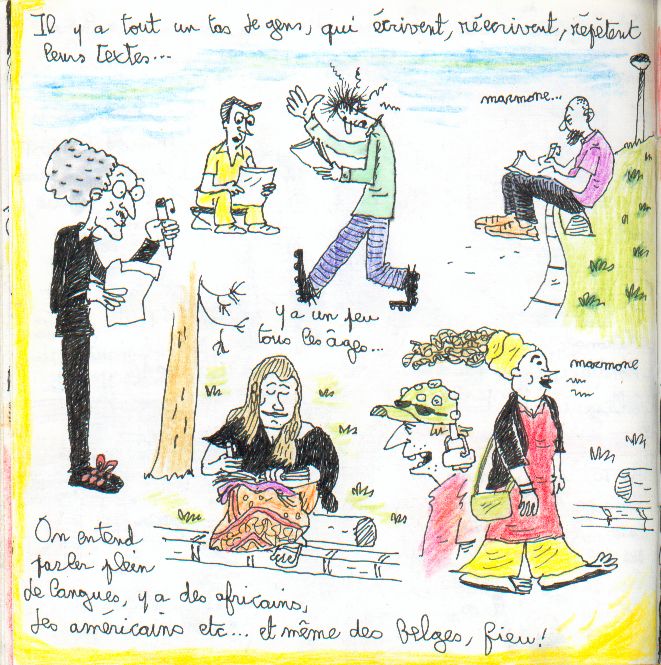 Il y a tout un tas de gens, qui écrivent, réécrivent, répètent
leurs textes...
marmone...
y a un peu
tous les âges...
marmone
On entend
parler plein
de langues, y a des africains,
des américains etc... et même des Belges, fieu!